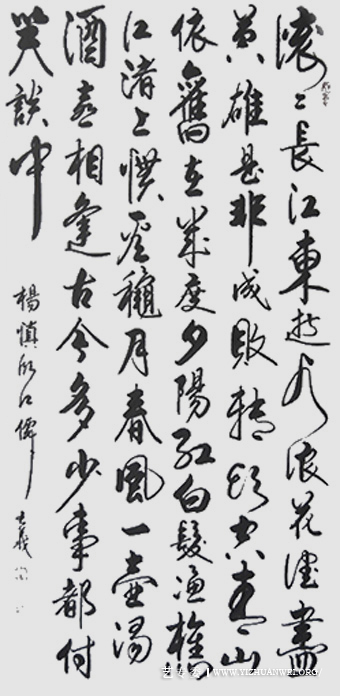 滚々長江東逝水浪花淘盡
英雄是非成敗轉頭空青山
依舊在幾度夕陽紅白髮漁樵
江渚上慣看穐月春風一壺濁
酒喜相逢古今多少事都付
笑談中
楊慎臨江僊
WWW.YIZHUANWEI.ORG